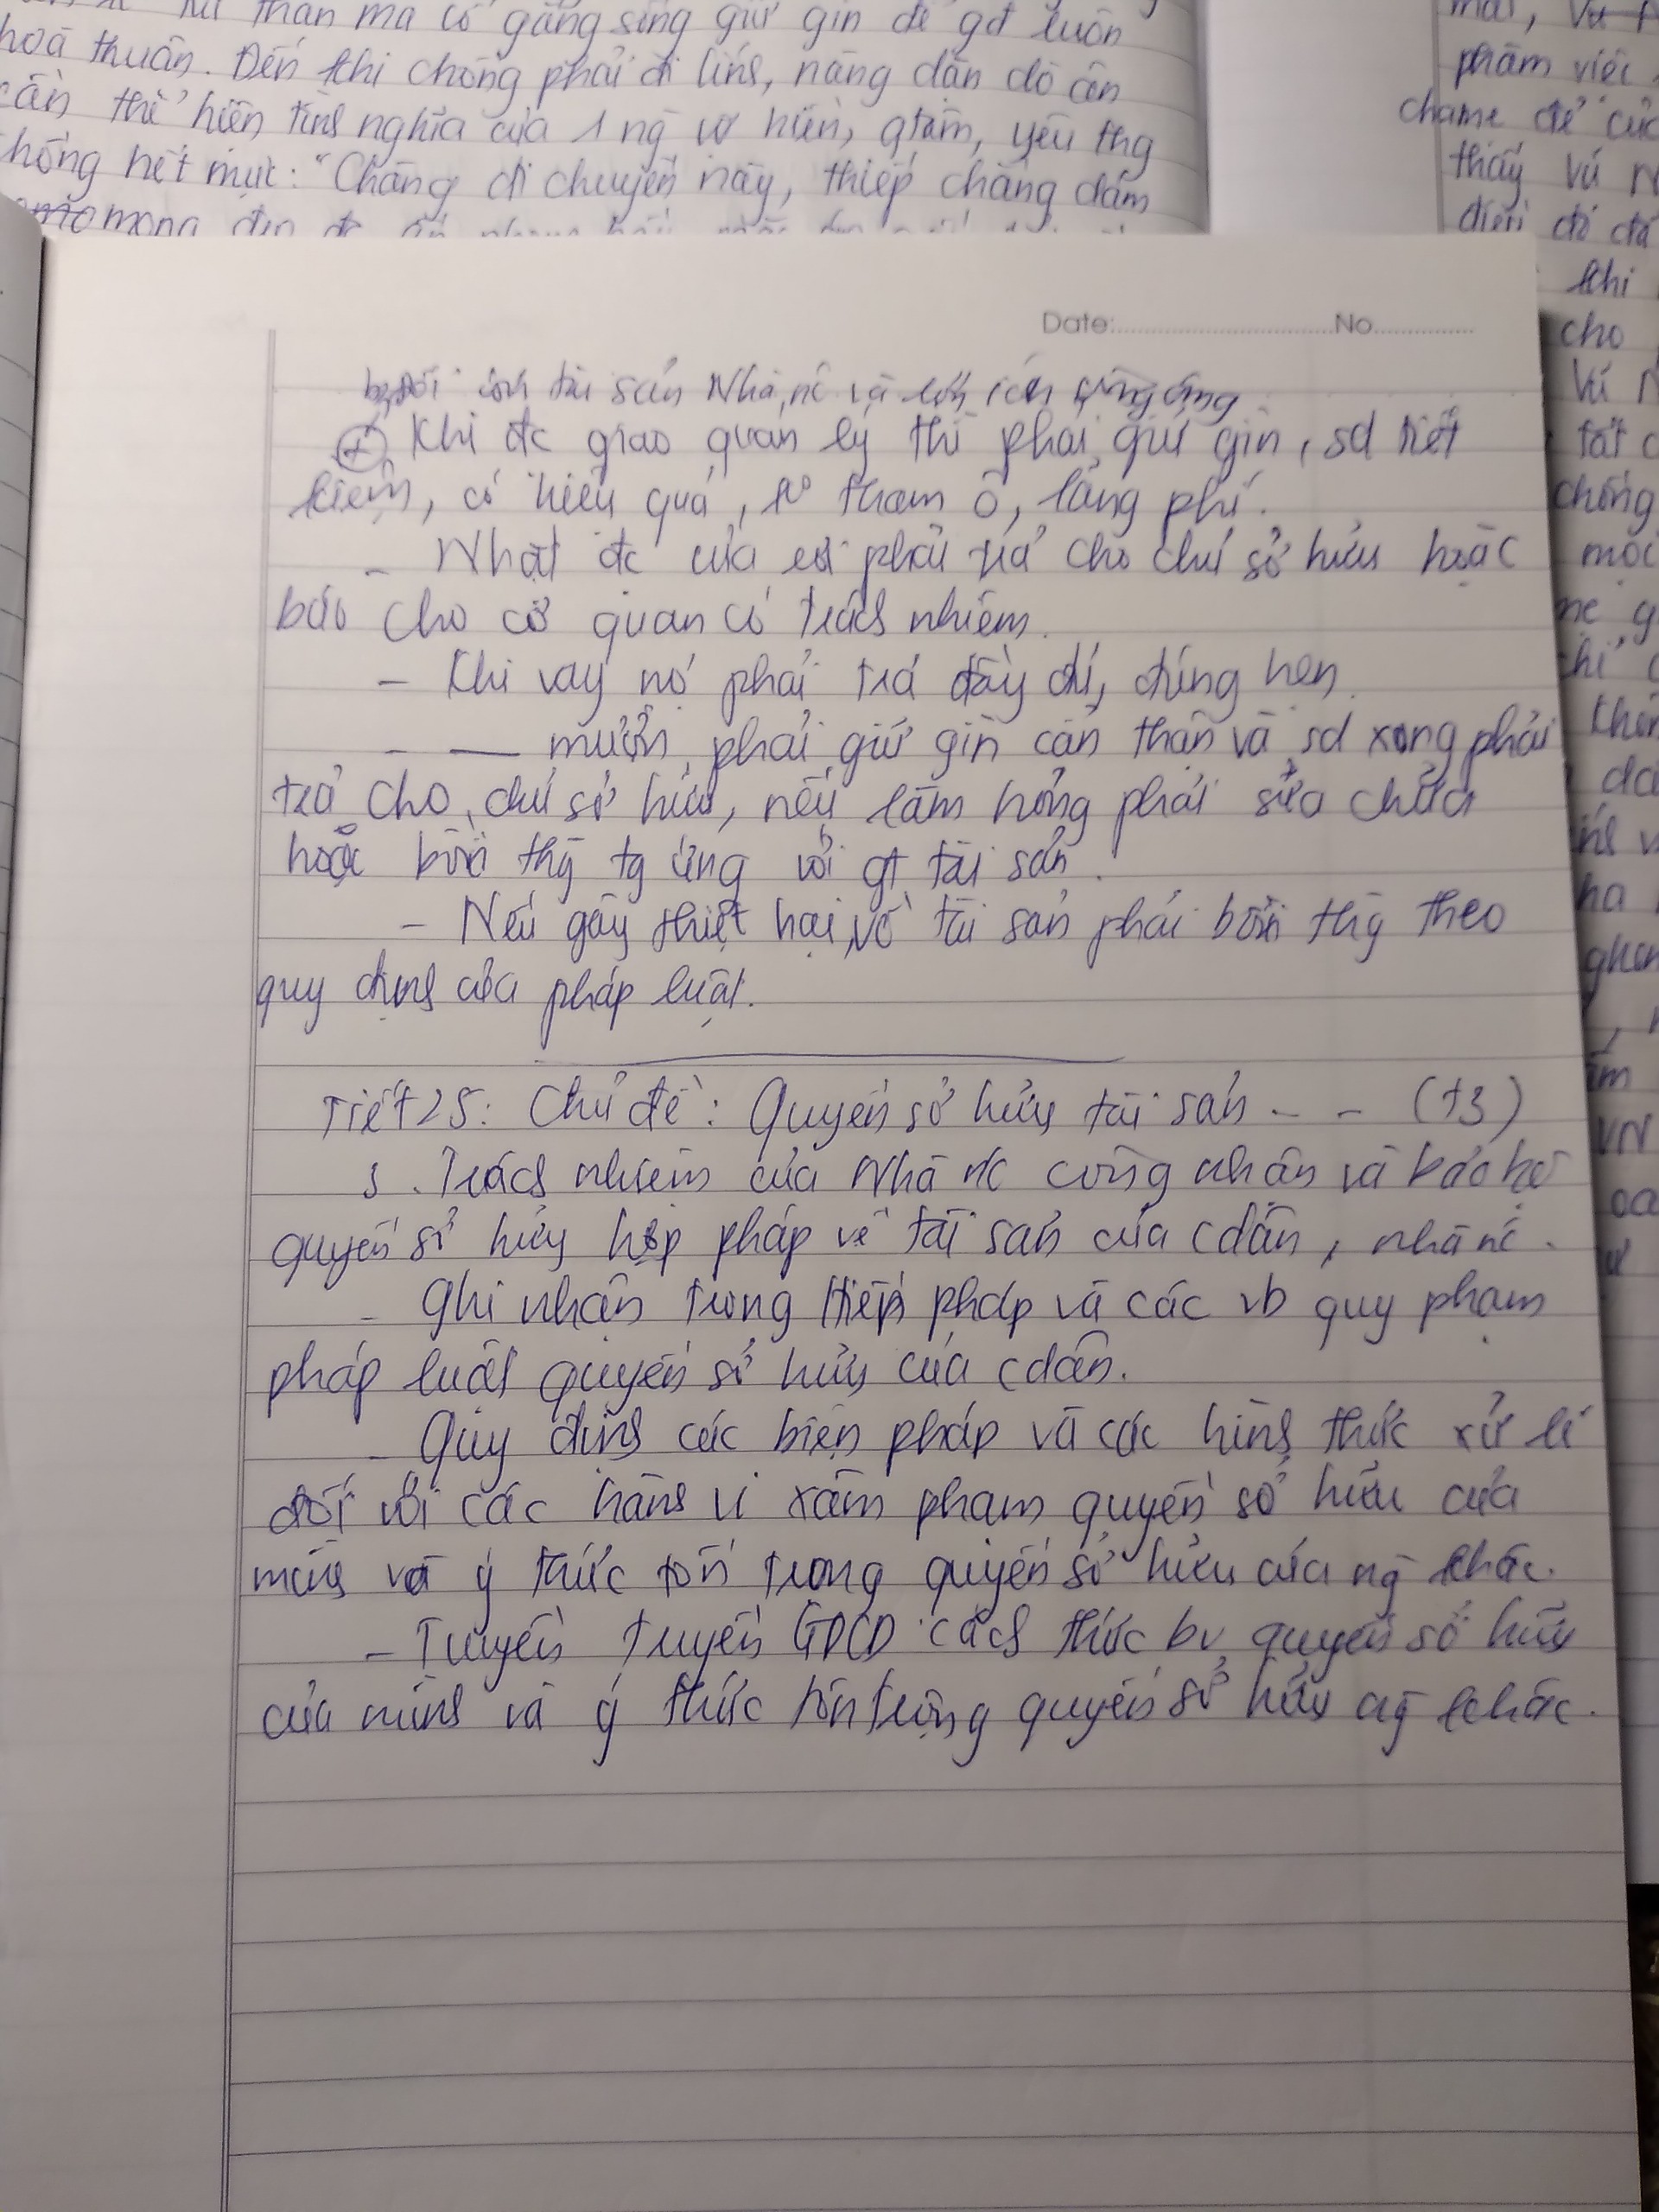 thân mà cố gắng sống giữ gìn để gđ luôn
hoà thuận. Đến khi chồng phải đi lính, nàng dặn dò ân
cần thể hiện tình nghĩa của 1 ng vợ hiền, yêu thg
chồng hết mực: "Chàng đi chuyến này, thiếp chẳng dám
mong
phẩm việc
để
thấy Vũ
điều đó đã
khi
cho
Vũ
tất
chồng
Date: No
b, Đối với tài sản Nhà nc và lợi ích cộng đồng
+ Khi đc giao quản lý thì phải giữ gìn, sd tiết
kiệm, có hiệu quả, ko tham ô, lãng phí.
- Nhặt đc của rơi phải trả cho chủ sở hữu hoặc
báo cho cơ quan có trách nhiệm.
- Khi vay nợ phải trả đầy đủ, đúng hẹn.
- — mượn phải giữ gìn cẩn thận và sd xong phải
trả cho chủ sở hữu, nếu làm hỏng phải sửa chữa
hoặc bồi thg tg ứng với gt tài sản.
- Nếu gây thiệt hại về tài sản phải bồi thg theo
quy định của pháp luật.
Tiết 25: Chủ đề: Quyền sở hữu tài sản - - (t3)
3. Trách nhiệm của Nhà nc công nhận và bảo hộ
quyền sở hữu hợp pháp về tài sản của cdân, nhà nc.
- Ghi nhận trong Hiến pháp và các vb quy phạm
pháp luật quyền sở hữu của cdân.
- Quy định các biện pháp và các hình thức xử lí
đối với các hành vi xâm phạm quyền sở hữu của
mình và ý thức tôn trọng quyền sở hữu của ng khác.
- Tuyên truyền GDCD cách thức bv quyền sở hữu
của mình và ý thức tôn trọng quyền sở hữu ng khác.